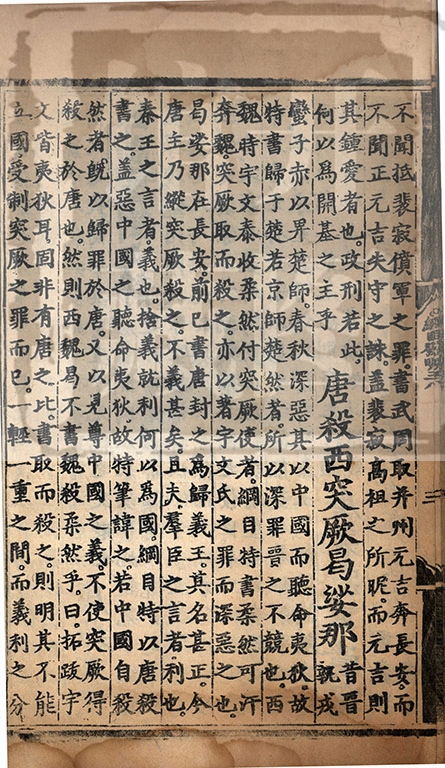 不聞抵裴寂僨軍之罪書武周取并州元吉奔長安而
不聞正元吉失守之誅。蓋裴寂高祖之所昵。而元吉則
其鍾愛者也。政刑若此。
何以爲開基之主乎
唐殺西突厥曷娑那
昔晉
執戎
蠻子亦以畀楚師。春秋深惡其以中國而聽命夷狄。故
特書歸于楚若京師楚然者。所以深罪晉之不競也。西
魏時宇文泰收柔然付突厥使者。綱目特書柔然可汗
奔魏。突厥取而殺之。亦以著宇文氏之罪而深惡之也。
曷娑那在長安。前已書唐封之爲歸義王。其名甚正。今
唐主乃縱突厥殺之。不義甚矣。且夫羣臣之言者利也。
秦王之言者義也。捨義就利何以爲國。綱目特以唐殺
書之。蓋惡中國之聽命夷狄。故特筆諱之。若中國自殺
然者。旣以歸罪於唐。又以見尊中國之義。不使突厥得
殺之於唐也。然則西魏曷不書魏殺柔然乎。曰。拓跋宇
文皆夷狄耳。固非有唐之比。書取而殺之。則明其不能
立國受制突厥之罪而已。一輕一重之間。而義利之分
三